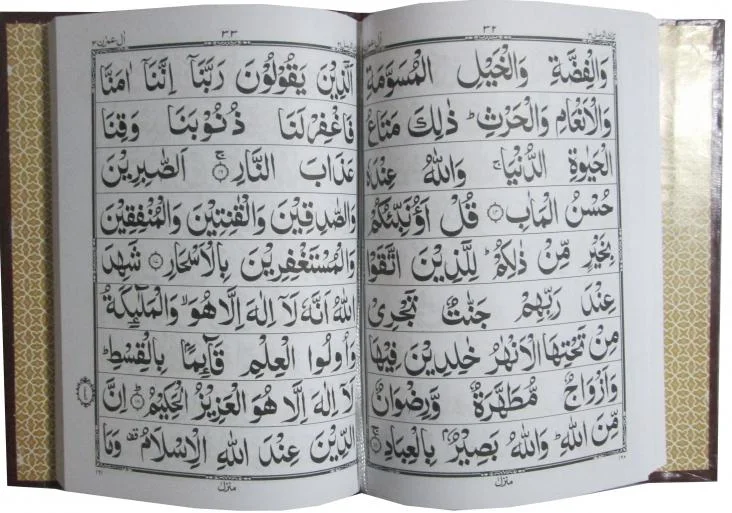 ٣٢
وَالْفِضَّةِ وَالْخَيْلِ الْمُسَوَّمَةِ
وَالْاَنْعَامِ وَالْحَرْثِ ؕ ذٰلِكَ مَتَاعُ
الْحَيٰوةِ الدُّنْيَا ۚ وَاللّٰهُ عِنْدَهٗ
حُسْنُ الْمَاٰبِ ۝ قُلْ اَؤُنَبِّئُكُمْ
بِخَيْرٍ مِّنْ ذٰلِكُمْ ؕ لِلَّذِيْنَ اتَّقَوْا
عِنْدَ رَبِّهِمْ جَنّٰتٌ تَجْرِيْ
مِنْ تَحْتِهَا الْاَنْهٰرُ خٰلِدِيْنَ فِيْهَا
وَاَزْوَاجٌ مُّطَهَّرَةٌ وَّرِضْوَانٌ
مِّنَ اللّٰهِ ؕ وَاللّٰهُ بَصِيْرٌۢ بِالْعِبَادِ ۝
منزل
اٰل عمرٰن ٣
٣٣
اَلَّذِيْنَ يَقُوْلُوْنَ رَبَّنَاۤ اِنَّنَاۤ اٰمَنَّا
فَاغْفِرْ لَنَا ذُنُوْبَنَا وَقِنَا
عَذَابَ النَّارِ ۝ۚ اَلصّٰبِرِيْنَ
وَالصّٰدِقِيْنَ وَالْقٰنِتِيْنَ وَالْمُنْفِقِيْنَ
وَالْمُسْتَغْفِرِيْنَ بِالْاَسْحَارِ ۝ شَهِدَ
اللّٰهُ اَنَّهٗ لَاۤ اِلٰهَ اِلَّا هُوَ ۙ وَالْمَلٰٓئِكَةُ
وَاُولُوا الْعِلْمِ قَآئِمًۢا بِالْقِسْطِ ؕ
لَاۤ اِلٰهَ اِلَّا هُوَ الْعَزِيْزُ الْحَكِيْمُ ۝ؕ اِنَّ
الدِّيْنَ عِنْدَ اللّٰهِ الْاِسْلَامُ ۫ وَمَا
منزل